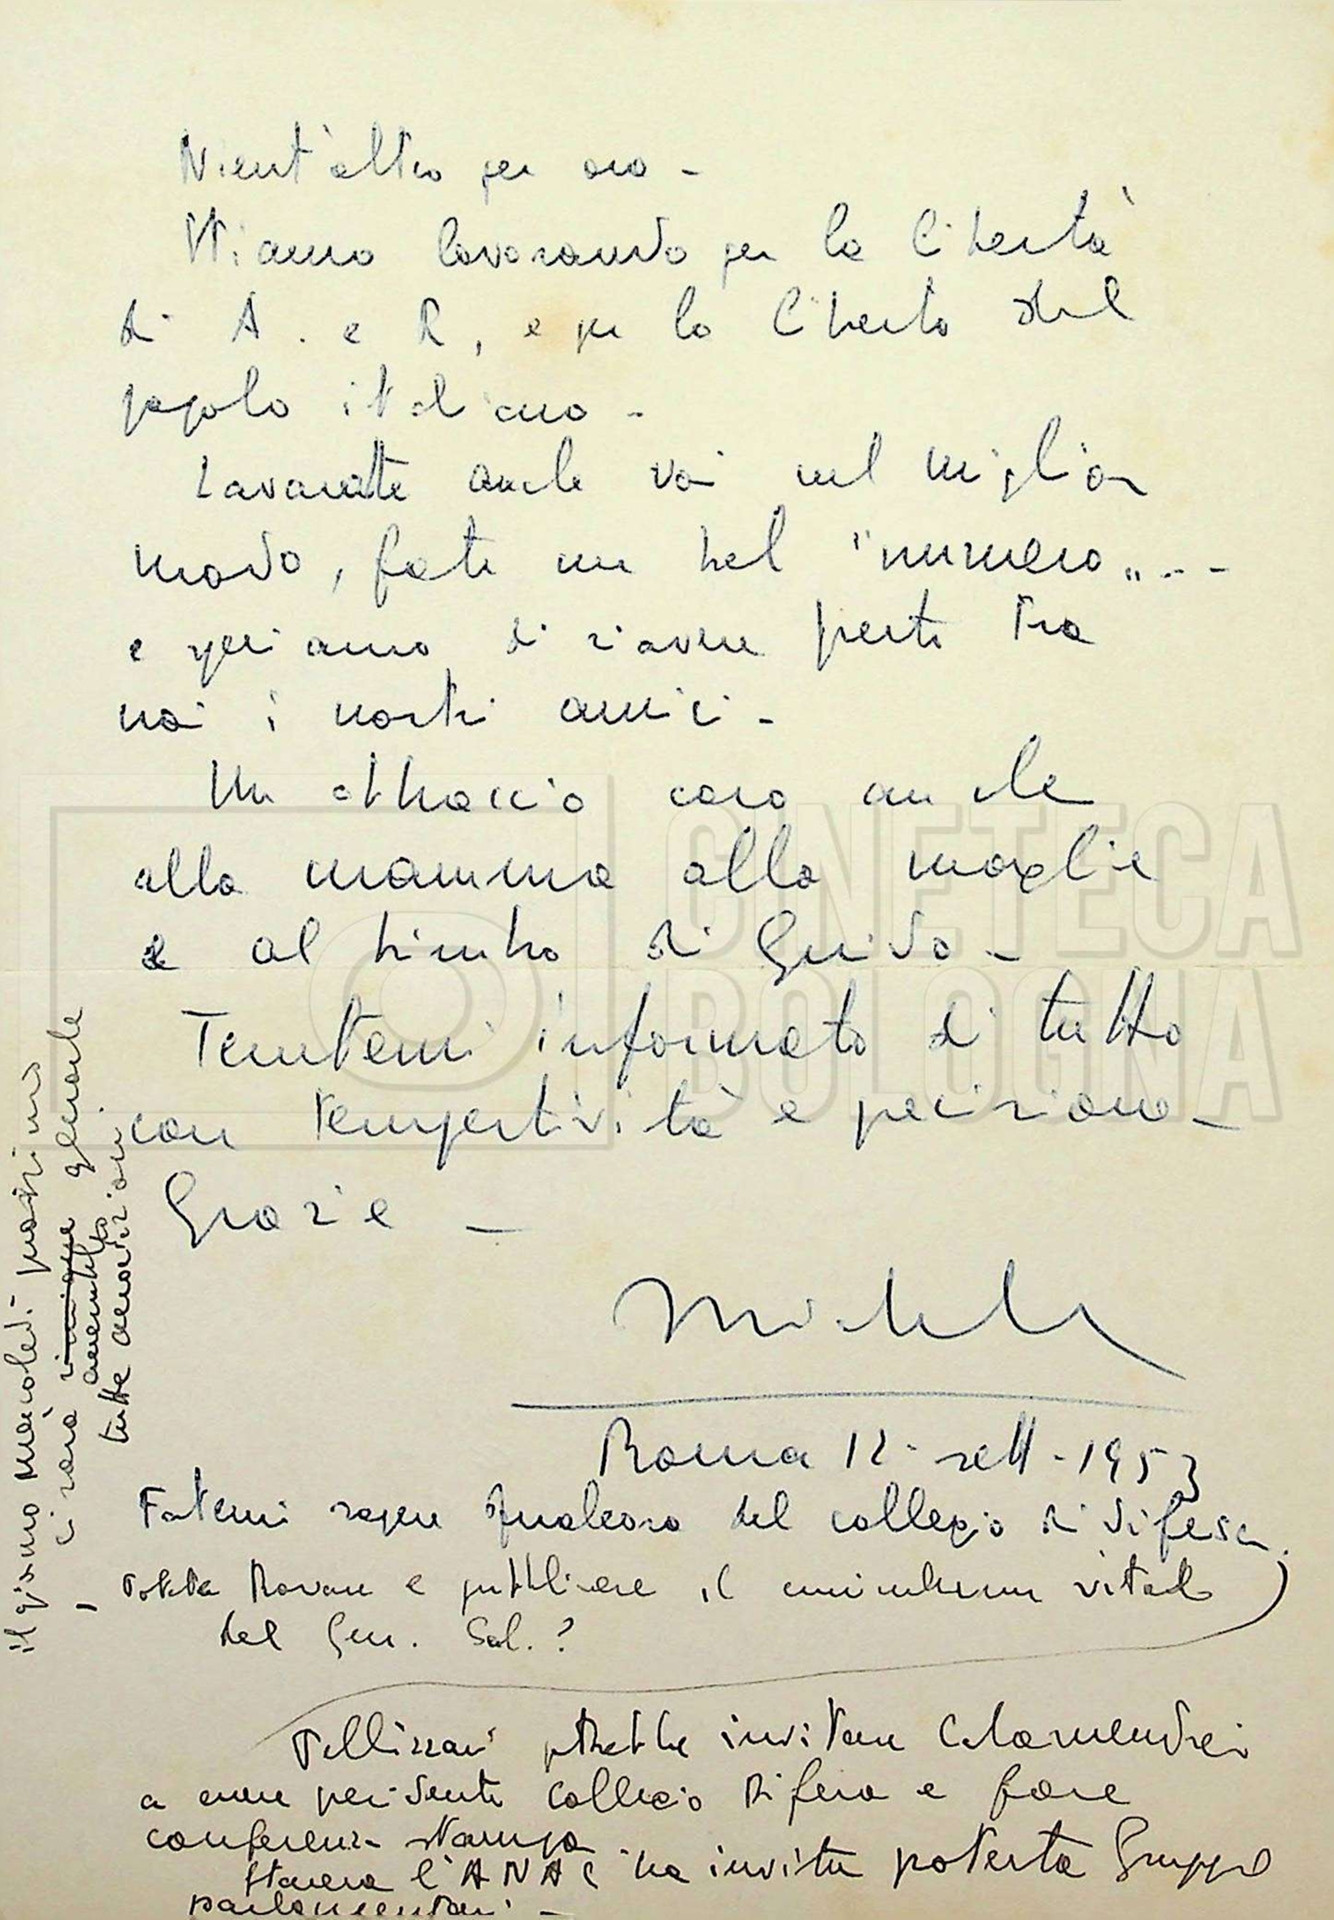 Nient'altro per ora -
Stiamo lavorando per la libertà
di A. e R, e per la libertà del
popolo italiano -
Lavorate anche voi nel miglior
modo, fate un bel "numero"...
e speriamo di riavere presto tra
noi i nostri amici -
Un abbraccio caro anche
alla mamma alla moglie
e al bimbo di Guido -
Tenetemi informato di tutto
con tempestività e precisione -
Grazie -
Michele
Roma 12 - sett - 1953
Fatemi sapere qualcosa del collegio di difesa.
Potete trovare e pubblicare il vitale
del Gen. Sol.?
Pellizzari potrebbe invitare Calamandrei
a essere presidente collegio difesa e fare
conferenza stampa
Stasera l'ANAC ha protesta Gruppi
parlamentari. -
Il giorno mercoledì prossimo
ci sarà riunione generale
assemblea
tutte associazioni
CINETECA
BOLOGNA